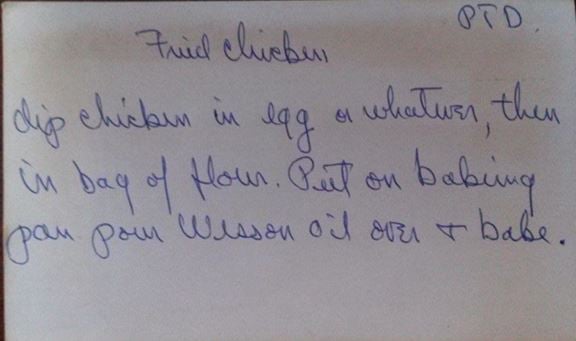 PTD.
Fried chicken
dip chicken in egg or whatever, then
in bag of flour. Put on baking
pan pour Wesson oil over + bake.